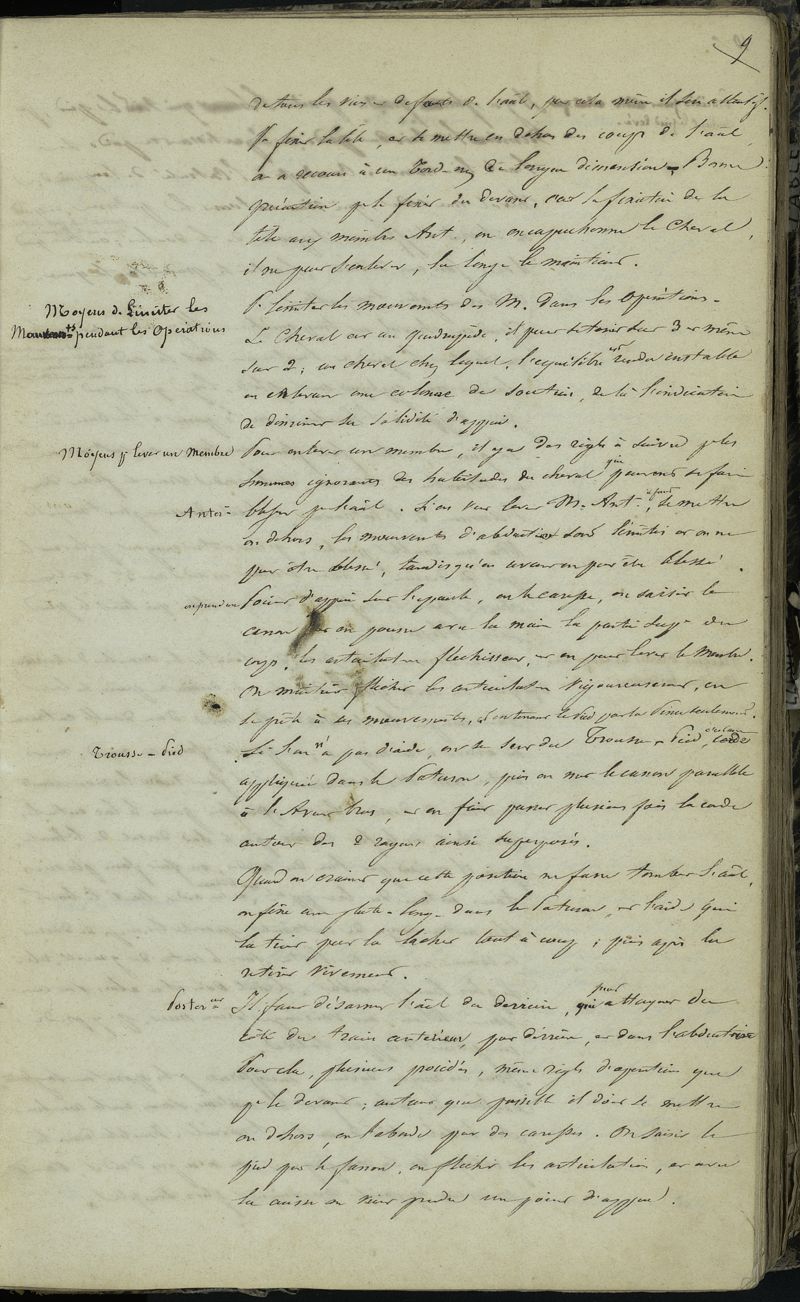 9
de tous les vices et défauts de l'anl, par cela même il sera attentif.
Pr fixer la tête, et se mettre en dehors des coups de l'anl,
on a recours à un Tord-nez de longue dimension. Bonne
précaution pr le fixer du devant, car la fixation de la
tête aux membres Ant., on encapuchonne le Cheval,
il ne peut s'enlever, la longe le maintient.
Moyens de Limiter les
Mouvemts pendant les Opérations
Pr limiter les mouvements des M. dans les Opérations.
Le Cheval est un quadrupède, il peut se tenir sur 3 et même
sur 2; un cheval chez lequel l'équilibre est rendu instable
en enlevant une colonne de soutien, de là l'indication
de diminuer la solidité d'appui.
Moyens pr lever un Membre
Pour enlever un membre, il y a des règles à suivre pr les
hommes ignorants des habitudes du cheval qui peuvent se faire
blesser pr l'anl. Si on veut lever M. Ant. il faut se mettre
Antér.
en dehors, les mouvements d'abduction sont limités et on ne
peut être blessé, tandis qu'en avant on peut être blessé.
on prend un
Point d'appui sur l'épaule, on le caresse, on saisit le
canon et on pousse avec la main la partie supr du
corps, les articulations fléchissent, et on peut lever le Membre.
On maintient fléchir les articulations vigoureusement, on
se prête à ses mouvements, et on tenant le pied par la Pince seulement.
Trousse-Pied
Si l'on n'a pas d'aide, on se sert du Trousse-Pied, c'est une corde
appliquée dans le Paturon, puis on met le canon parallèle
à l'Avant bras, et on fait passer plusieurs fois la corde
autour des 2 rayons ainsi superposés.
Quand on craint que cette position ne fasse tomber l'anl,
on fixe une plate-longe dans le Paturon, et l'aide qui
la tient peut la lâcher tout à coup; puis après la
retirer vivement.
Postérieur
Il faut désarmer l'anl du derrière, qui peut attaquer du
côté du train antérieur, par derrière, et dans l'abduction
Pour cela, plusieurs procédés, même règle d'opération que
pr le devant; autant que possible il doit se mettre
en dehors, on l'aborde par des caresses. On saisit le
pied par le fanon, on fléchit les articulations, et avec
la cuisse on vient prendre un point d'appui.